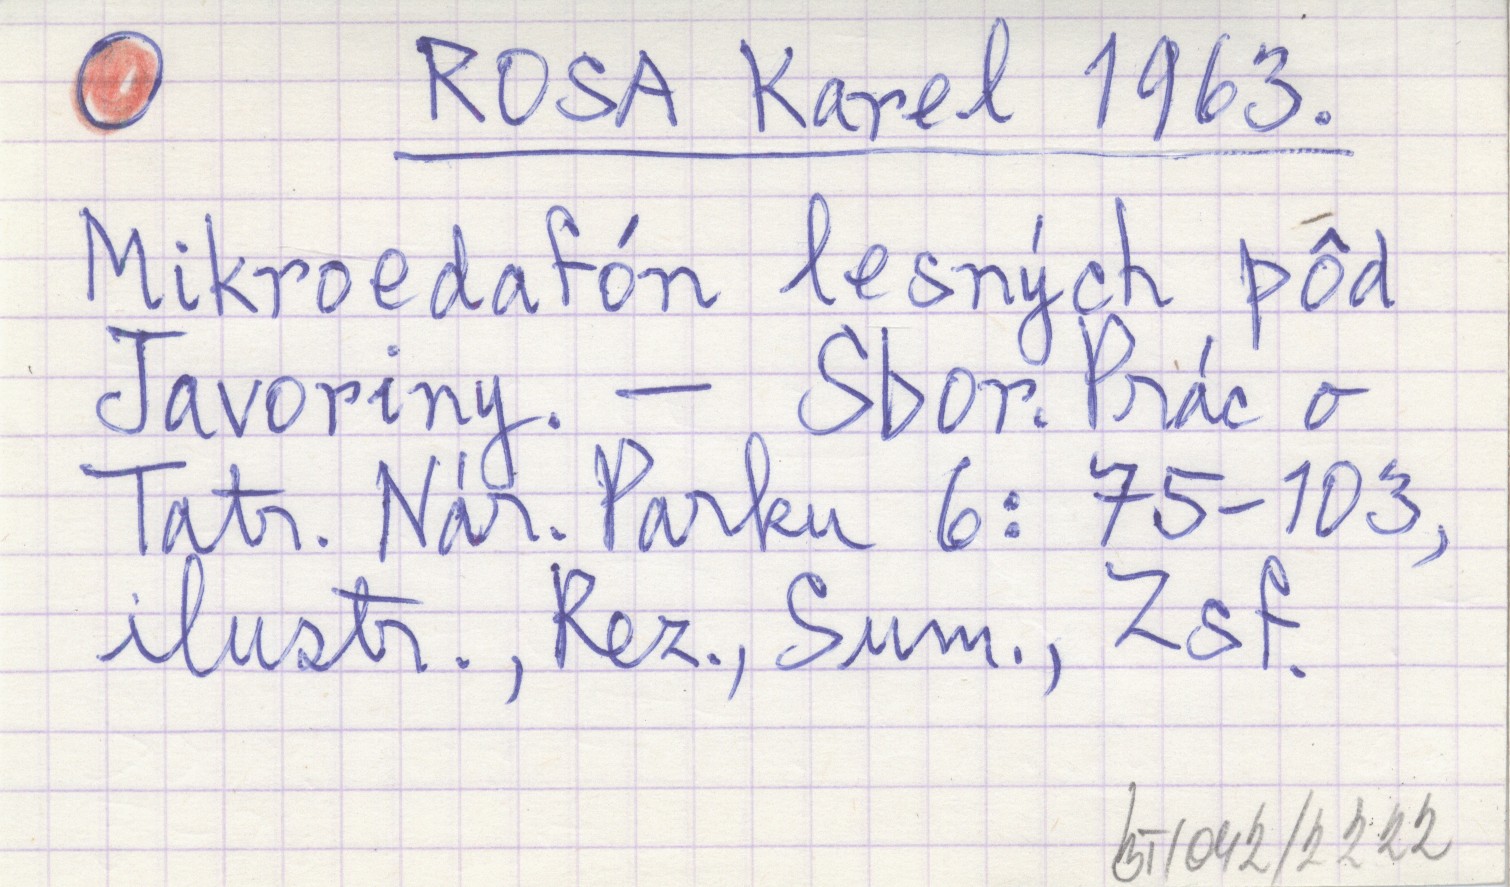 ROSA Karel 1963.
Mikroedafón lesných pôd
Javoriny. — Sbor. Prác o
Tatr. Nár. Parku 6: 75-103,
ilustr., Rez., Sum., Zsf.